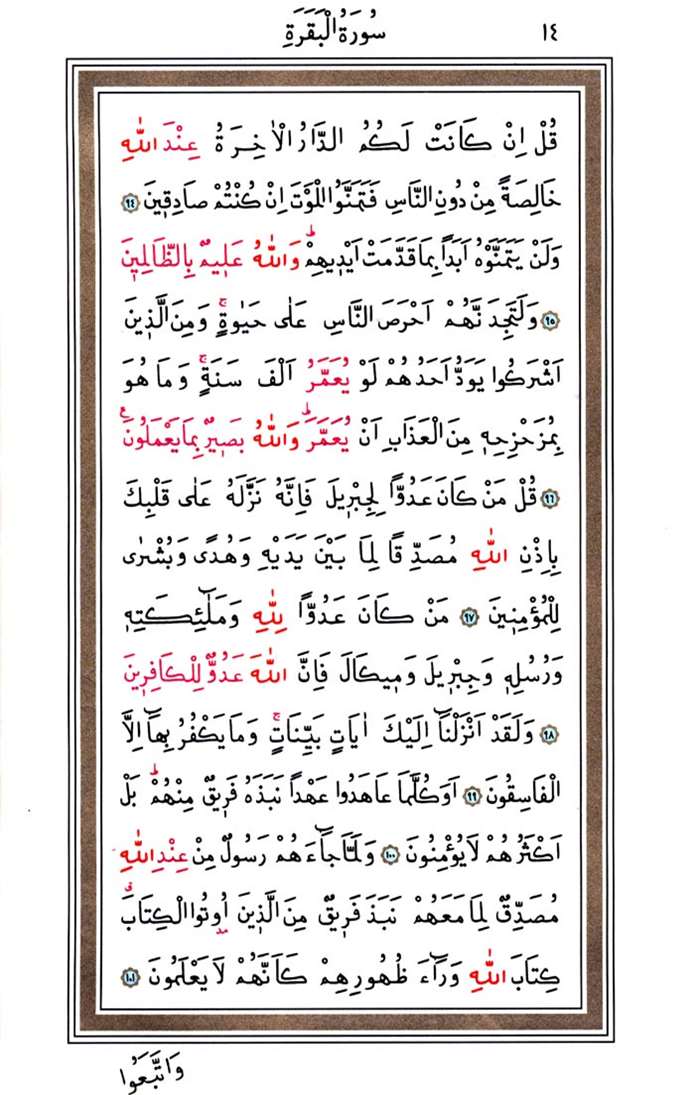 سُورَةُ الْبَقَرَةِ ١٤
قُلْ اِنْ كَانَتْ لَكُمُ الدَّارُ الْاٰخِرَةُ عِنْدَ اللّٰهِ
خَالِصَةً مِنْ دُونِ النَّاسِ فَتَمَنَّوُا الْمَوْتَ اِنْ كُنْتُمْ صَادِقٖينَ ﴿٩٤﴾
وَلَنْ يَتَمَنَّوْهُ اَبَدًا بِمَا قَدَّمَتْ اَيْدٖيهِمْۜ وَاللّٰهُ عَلٖيمٌ بِالظَّالِمٖينَ
﴿٩٥﴾ وَلَتَجِدَنَّهُمْ اَحْرَصَ النَّاسِ عَلٰى حَيٰوةٍۚ وَمِنَ الَّذٖينَ
اَشْرَكُوا يَوَدُّ اَحَدُهُمْ لَوْ يُعَمَّرُ اَلْفَ سَنَةٍۚ وَمَا هُوَ
بِمُزَحْزِحِهٖ مِنَ الْعَذَابِ اَنْ يُعَمَّرَۜ وَاللّٰهُ بَصٖيرٌ بِمَا يَعْمَلُونَࣖ
﴿٩٦﴾ قُلْ مَنْ كَانَ عَدُوًّا لِجِبْرٖيلَ فَاِنَّهُ نَزَّلَهُ عَلٰى قَلْبِكَ
بِاِذْنِ اللّٰهِ مُصَدِّقًا لِمَا بَيْنَ يَدَيْهِ وَهُدًى وَبُشْرٰى
لِلْمُؤْمِنٖينَ ﴿٩٧﴾ مَنْ كَانَ عَدُوًّا لِلّٰهِ وَمَلٰٓئِكَتِهٖ
وَرُسُلِهٖ وَجِبْرٖيلَ وَمٖيكَالَ فَاِنَّ اللّٰهَ عَدُوٌّ لِلْكَافِرٖينَ
﴿٩٨﴾ وَلَقَدْ اَنْزَلْنَٓا اِلَيْكَ اٰيَاتٍ بَيِّنَاتٍۚ وَمَا يَكْفُرُ بِهَٓا اِلَّا
الْفَاسِقُونَ ﴿٩٩﴾ اَوَكُلَّمَا عَاهَدُوا عَهْدًا نَبَذَهُ فَرٖيقٌ مِنْهُمْۜ بَلْ
اَكْثَرُهُمْ لَا يُؤْمِنُونَ ﴿١٠٠﴾ وَلَمَّا جَٓاءَهُمْ رَسُولٌ مِنْ عِنْدِ اللّٰهِ
مُصَدِّقٌ لِمَا مَعَهُمْ نَبَذَ فَرٖيقٌ مِنَ الَّذٖينَ اُوتُوا الْكِتَابَۗ
كِتَابَ اللّٰهِ وَرَٓاءَ ظُهُورِهِمْ كَاَنَّهُمْ لَا يَعْلَمُونَ ﴿١٠١﴾
وَاتَّبَعُوا